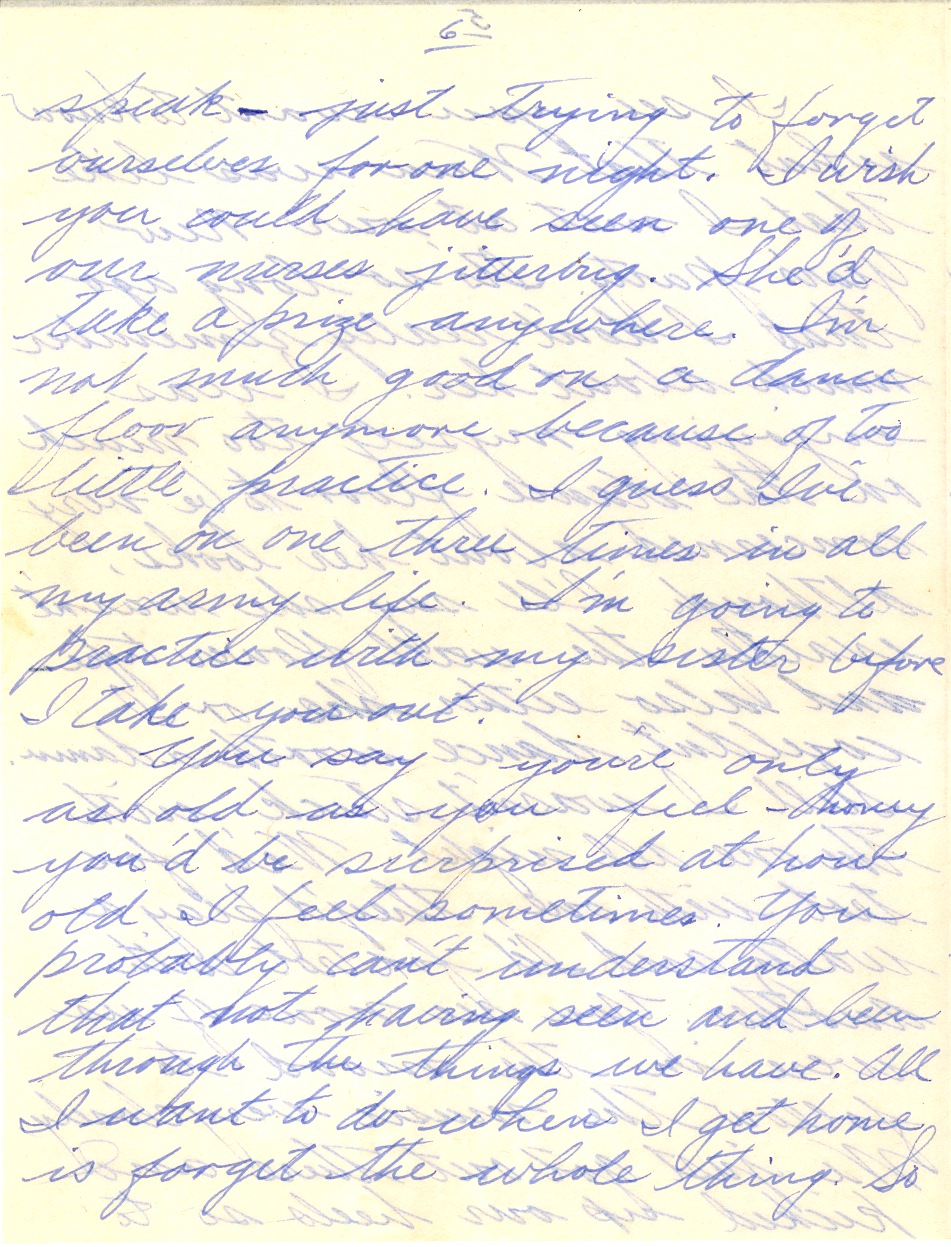 speak - just trying to forget
ourselves for one night. I wish
you could have seen one of
our nurses jittering. She'd
take a prize anywhere. I'm
not much good on a dance
floor anymore because of too
little practice. I guess I've
been on one three times in all
my army life. I'm going to
practice with my sister before
I take you out.
You say you're only
as old as you feel - honey
you'd be surprised at how
old I feel sometimes. You
probably can't understand
that not having seen and been
through the things we have. All
I want to do when I get home
is forget the whole thing. So